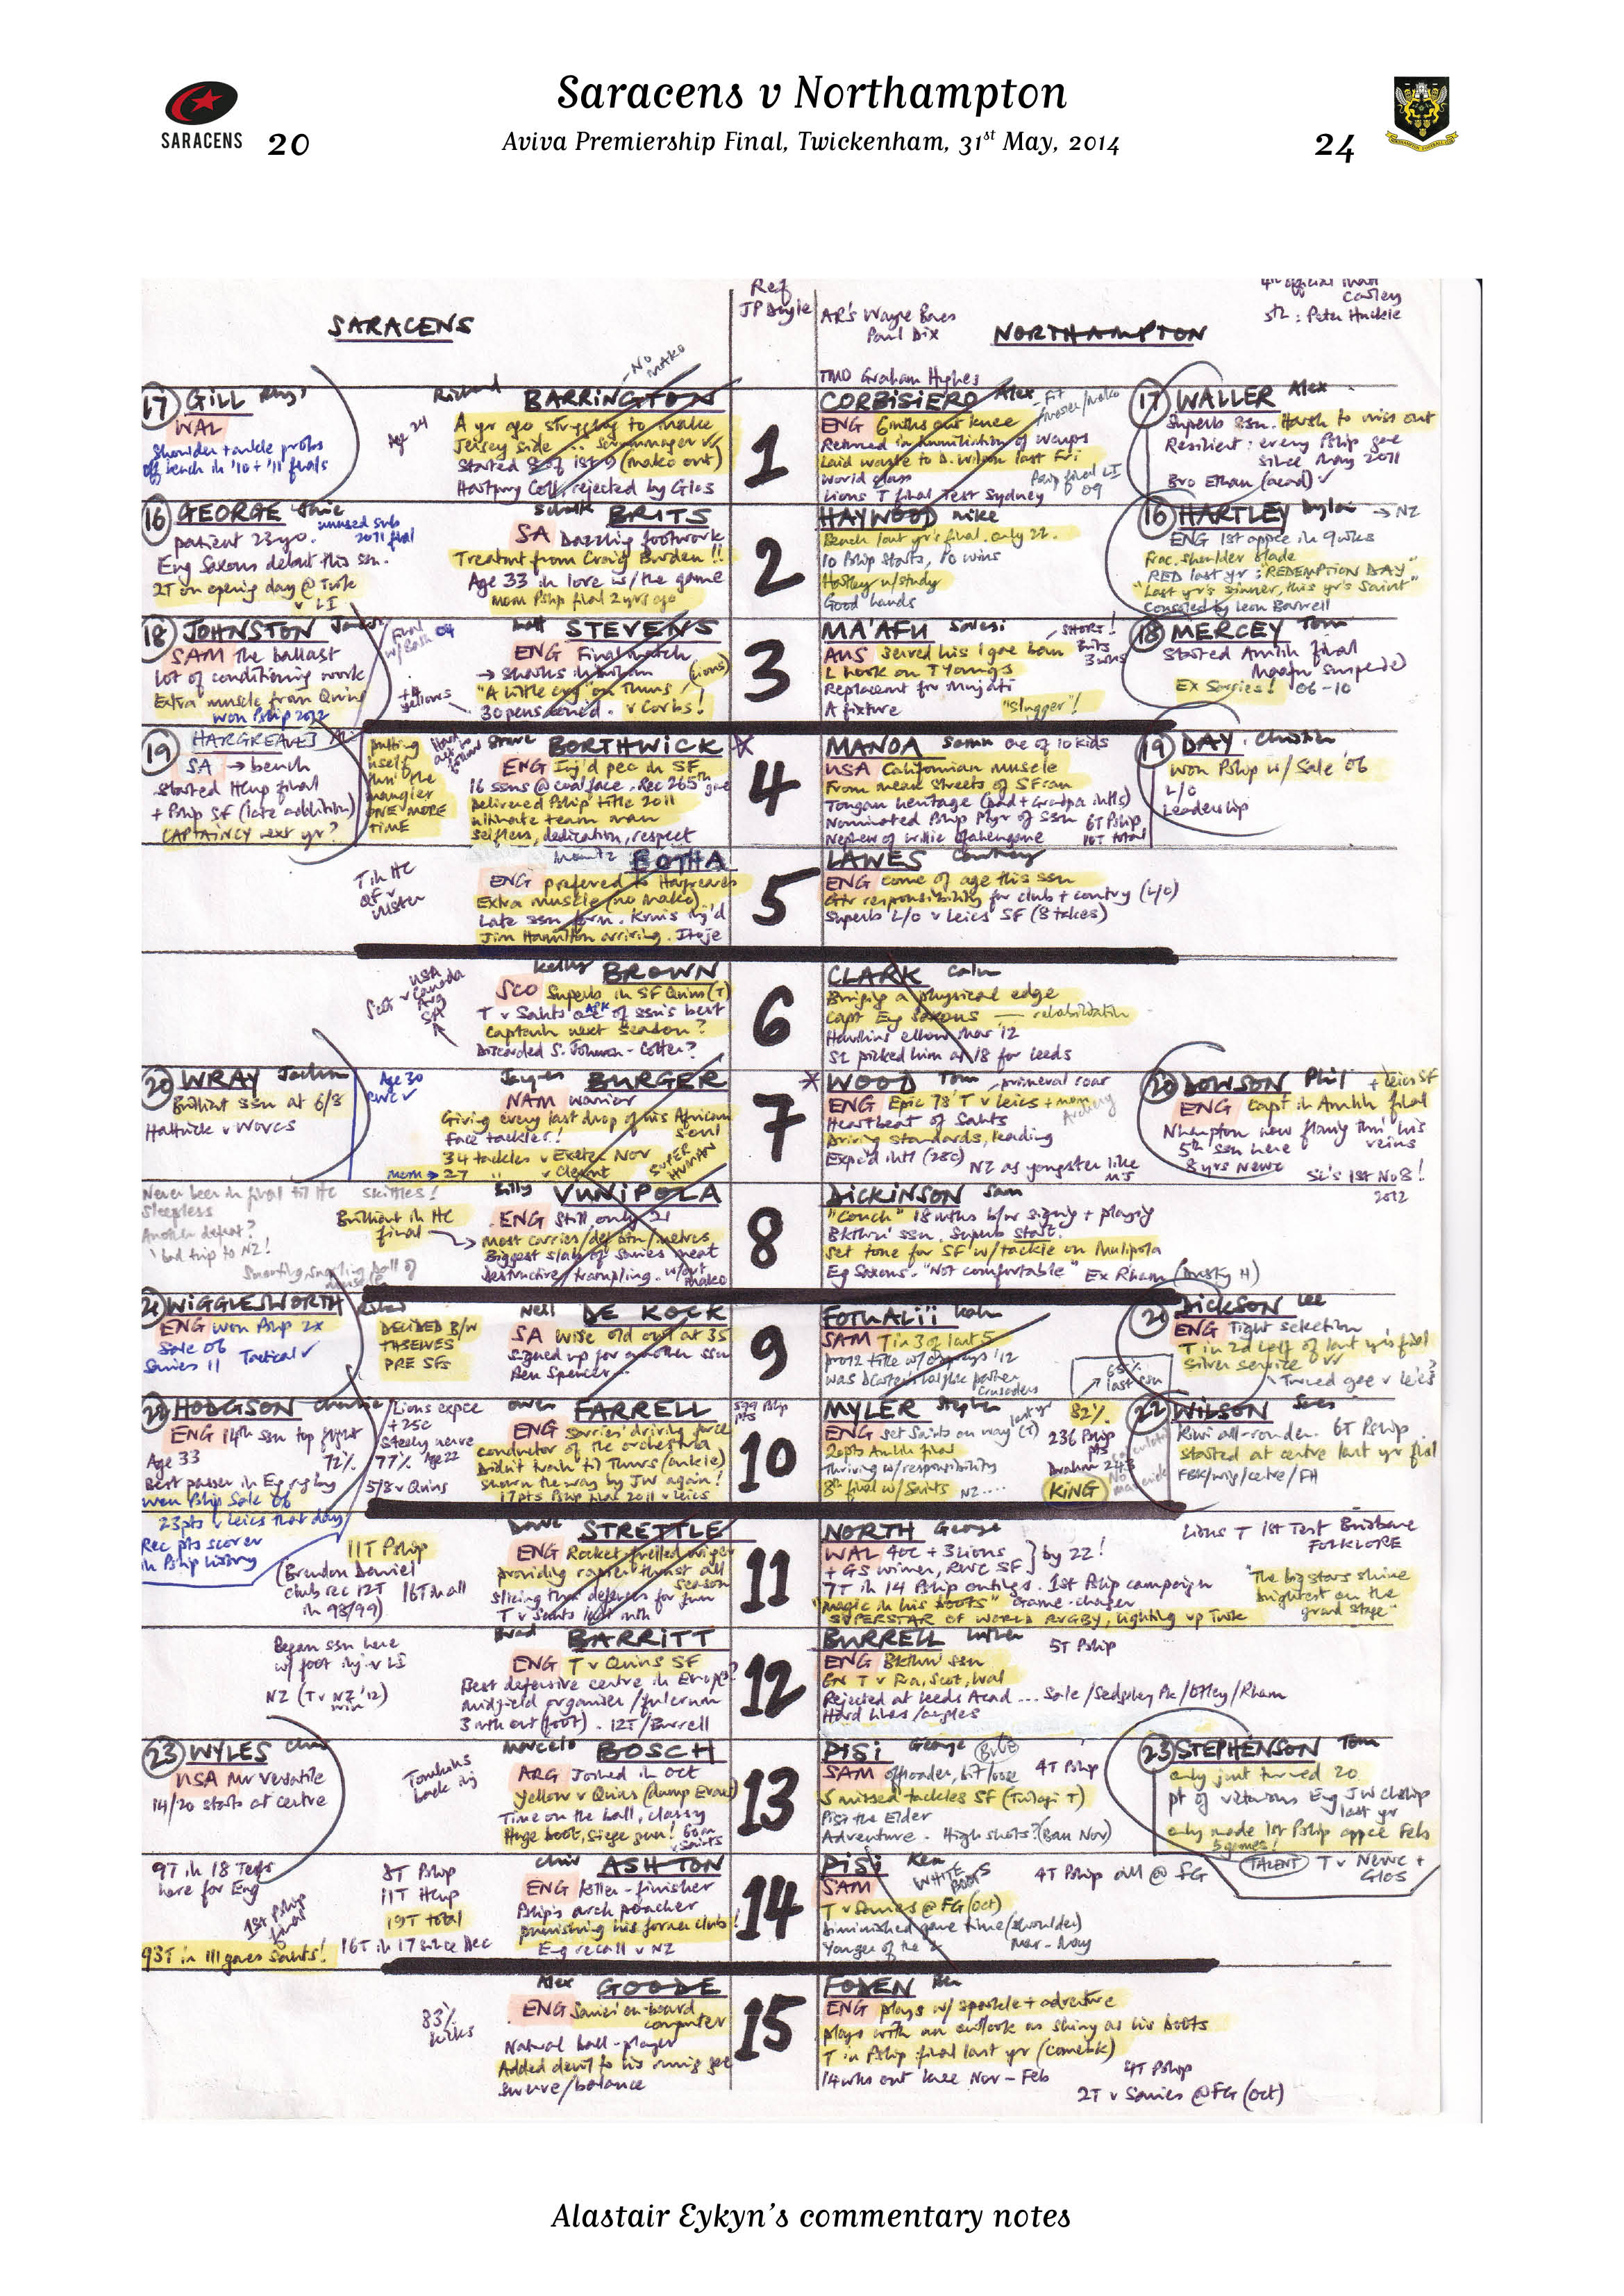 Saracens v Northampton
SARACENS 20
Aviva Premiership Final, Twickenham, 31st May, 2014
24
Ref
JP Doyle
AR's Wayne Barnes
Paul Dix
4th official
5th: Peter Huckle
SARACENS
NORTHAMPTON
TMO Graham Hughes
17 GILL Rhys
WAL
Shoulder + ankle probs
off bench in '10 + '11 finals
Age 24
Richard BARRINGTON
NO MAKO
A yr ago struggling to make
Jersey side
Started 8 of 1st 9 (mako out)
Hartpury Coll, rejected by Glos
1
CORBISIERO Alex
ENG 6mths out knee
Returned in humiliation of Wasps
Laid waste to D. Wilson last Fri
World class
Lions T final Test Sydney
Pship final LI
09
17 WALLER Alex
Superb ssn. Harsh to miss out
Resilient: every Pship game
since May 2011
Bro Ethan (acad)
16 GEORGE Jamie
unused sub
2011 final
patient 23yo.
Eng Saxons debut this ssn.
2T on opening day @ Twik
v LI
Schalk BRITS
SA Dazzling footwork
Treatment from Craig Burden !!
Age 33 in love w/ the game
mom Pship final 2 yrs ago
2
HAYWOOD Mike
Bench last yr's final. Only 22.
10 Pship starts, 10 wins
Hartley u/study
Good hands
16 HARTLEY Dylan → NZ
ENG 1st appce in 9wks
Frac. shoulder blade
RED last yr: "REDEMPTION DAY"
"Last yr's sinner, this yr's Saint"
Consoled by Leon Barrell
18 JOHNSTON James
SAM The ballast
Lot of conditioning work
Extra muscle from Quins
won Pship 2012
Final
w/ Bath 04
Matt STEVENS
ENG Final match
→ Sharks in Durban (Lions)
"A little cry" on Thurs
30 pens v Corbs!
3
MA'AFU Salesi
AUS served his 1 game ban
L hook on T Youngs
Replacement for Mujati
A fixture
"Slugger"!
SHORT!
18 MERCEY Tom
Started Amlin final
Ma'afu suspended
Ex Sarries! 06-10
19 HARGREAVES Ali
SA → bench
Started HCup final
+ Pship SF (late addition)
CAPTAINCY next yr?
putting
himself
thru the
mangler
ONE MORE
TIME
Steve BORTHWICK
ENG Inj'd pec in SF
16 ssns @ coalface. Rec 265th game
Delivered Pship title 2011
ultimate team man
selfless, dedication, respect
4
MANOA Samu one of 10 kids
USA Californian muscle
From mean streets of S Fran
Tongan heritage (Dad + Grandpa intls)
Nominated Pship Plyr of ssn 6T Pship
Nephew of Willie Ofahengaue 10T total
19 DAY Christian
won Pship w/ Sale '06
L/O
Leadership
T in HC
QF v
Ulster
Mouritz BOTHA
ENG preferred to Hargreaves
Extra muscle (no Mako)
Late ssn form. Kruis inj'd
Jim Hamilton arriving. Itoje
5
LAWES Courtney
ENG come of age this ssn
Gtr responsibility for club + country (L/O)
Superb L/O v Leics' SF (8 takes)
USA
Canada
Arg
SA
Kelly BROWN
SCO Superb in SF Quins (T)
T v Saints one of ssn's best
Captain next season?
Discarded S. Johnson - Cotter?
6
CLARK Calum
Bringing a physical edge
Capt Eng Saxons — rehabilitation
Hawkins' elbow Mar '12
SL picked him at 18 for Leeds
20 WRAY Jackson
Brilliant ssn at 6/8
Hattrick v Worcs
Age 30
RWC ✓
Jacques BURGER
NAM Warrior
Giving every last drop of his African
soul
Face tackler!
34 tackles v Exeter Nov
mom → 27 " v Clermt
SUPER
HUMAN
7
WOOD Tom - primeval roar
ENG Epic 78' T v Leics + mom
Archery
Heartbeat of Saints
Driving standards, leading
Exp'd intl (28c)
NZ as youngster like
MJ
20 DOWSON Phil + Leics SF
ENG Capt in Amlin final
Nhampton now flowing thru his
veins
5th ssn here
8 yrs Newc
SL's 1st No 8!
2012
Never been in final til HC
Sleepless
Another defeat?
bad trip to NZ!
Skittles!
Brilliant in HC
final
Snorting, snarling ball of
muscle
Billy VUNIPOLA
ENG Still only 21
most carries/def btn/metres
Biggest slab of Sarries meat
destructive/trampling. w/out
mako
8
DICKINSON Sam
"Couch" 18mths b/w signing + playing
Bkthru' ssn. Superb start.
Set tone for SF w/tackle on Mulipola
Eng Saxons. "Not comfortable" Ex Rham (Dusty H)
21 WIGGLESWORTH Richard
ENG won Pship 2x
Sale 06
Sarries 11 Tactical ✓
DECIDED B/W
THSELVES
PRE SFs
Neil DE KOCK
SA Wise old owl at 35
signed up for another ssn
Ben Spencer...
9
FOTUALI'I Kahn
SAM T in 3 of last 5
Pro12 title w/ Ospreys '12
Crusaders
65%
last ssn
21 DICKSON Lee
ENG Tight selection
T in 2nd half of last yr's final
Silver service
Turned game v Leics?
22 HODGSON Charlie
ENG 14th ssn top flight
Age 33 72%
Best passer in Eng rugby
won Pship Sale 06
23pts v Leics that day
Rec pts scorer
in Pship history
Lions expce
+ 25c
Steely nerve
77% Age 22
5/8 v Quins
Owen FARRELL
ENG Sarries' driving force
conductor of the orchestra
Didn't train til Thurs (ankle)
Shown the way by JW again!
17pts Pship final 2011 v Leics
599 Pship
pts
10
MYLER Stephen
ENG set Saints on way (T)
20pts Amlin final
Thriving w/ responsibility
8th final w/ Saints NZ....
82%
236 Pship
pts
KING
22 WILSON James
Kiwi all-rounder. 6T Pship
Started at centre last yr final
FBK/wing/centre/FH
11T Pship
(Brendon Daniel
club rec 12T
in 98/99)
16T in all
David STRETTLE
ENG Rocket-fuelled winger
providing rapier thrust all
season
slicing thru defences for fun
T v Saints last mth
11
NORTH George
WAL 40c + 3 Lions } by 22!
+ GS winner, RWC SF
7T in 14 Pship outings. 1st Pship campaign
"magic in his boots" Game-changer
SUPERSTAR OF WORLD RUGBY, lighting up Twik
Lions T 1st Test Brisbane
FOLKLORE
"The big stars shine
brightest on the
grand stage"
Began ssn here
w/ foot inj v LI
NZ (T v NZ '12)
win
Brad BARRITT
ENG T v Quins SF
Best defensive centre in Europe?
midfield organiser/fulcrum
3 mth out (foot). 12T/Burrell
12
BURRELL Luther
5T Pship
ENG Bkthru' ssn
6N T v Fra, Scot, Wal
Rejected at Leeds Acad ... Sale/Sedgley Pk/Otley/Rham
Hard lines/angles
23 WYLES Chris
USA Mr Versatile
14/20 starts at centre
Tomkins
back inj
Marcelo BOSCH
ARG Joined in Oct
Yellow v Quins (dump Evans)
Time on the ball, classy
Huge boot, siege gun! 60m
v Saints
13
PISI George
SAM offloader, bit loose
4T Pship
5 missed tackles SF (Tuilagi T)
Pisi the Elder
Adventure. High shots? (Ban Nov)
23 STEPHENSON Tom
only just turned 20
pt of victorious Eng JW Chship
last yr
only made 1st Pship appce Feb
5 games!
TALENT T v Newc +
Glos
9T in 18 Tests
here for Eng
1st Pship
final
93T in 111 games Saints!
8T Pship
11T HCup
19T total
16T in 17 since Dec
Chris ASHTON
ENG killer-finisher
Pship's arch poacher
punishing his former club!
Eng recall v NZ
14
PISI Ken
WHITE
BOOTS
SAM
T v Sarries @ FG (Oct)
Diminished game time (shoulder)
Nov - May
Younger of the 2
4T Pship all @ FG
83%
kicks
Alex GOODE
ENG Sarries' on-board
computer
Natural ball-player
Added devil to his running game
Swerve/balance
15
FODEN Ben
ENG plays w/ sparkle + adventure
plays with an outlook as shiny as his boots
T in Pship final last yr (comeback)
14wks out knee Nov - Feb
4T Pship
2T v Sarries @ FG (Oct)
Alastair Eykyn's commentary notes